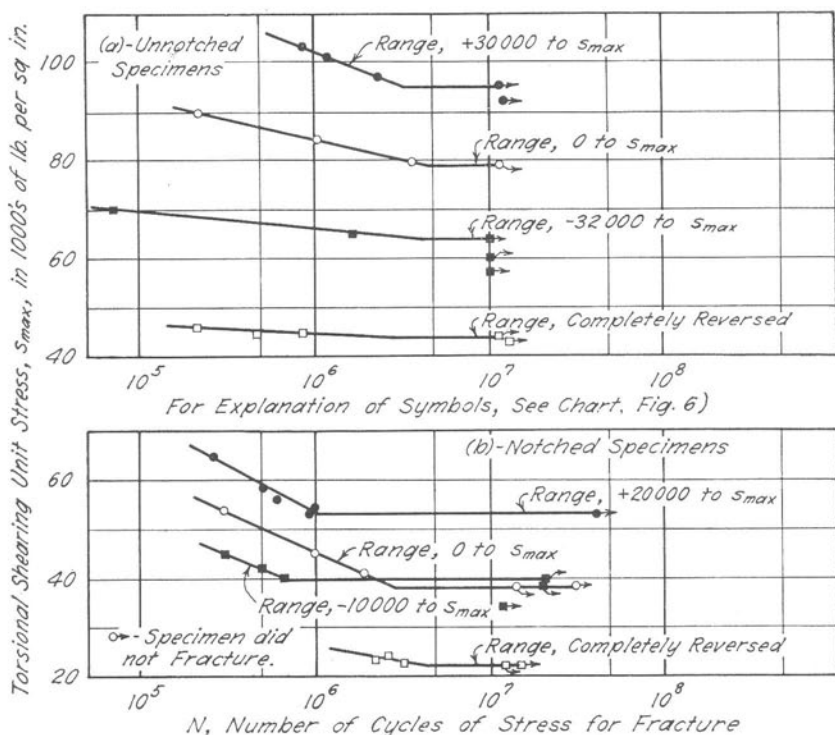 Torsional Shearing Unit Stress, s_max, in 1000's of lb. per sq in.
(a)-Unnotched
Specimens
Range, +30000 to s_max
Range, 0 to s_max
Range, -32000 to s_max
Range, Completely Reversed
100
80
60
40
10⁵ 10⁶ 10⁷ 10⁸
For Explanation of Symbols, See Chart. Fig. 6)
(b)-Notched Specimens
Range, +20000 to s_max
Range, 0 to s_max
Range, -10000 to s_max
-Specimen did
not Fracture.
Range, Completely Reversed
60
40
20
10⁵ 10⁶ 10⁷ 10⁸
N, Number of Cycles of Stress for Fracture